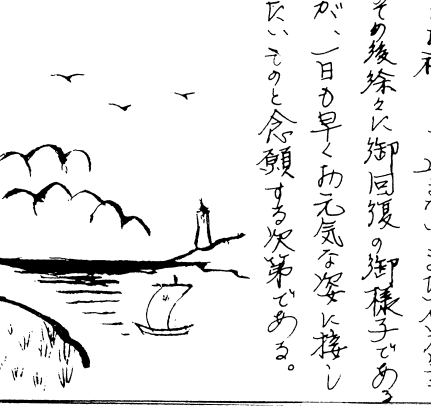 その後徐々に御回復の御様子である
が、一日も早くお元気な姿に接し
たいものと念願する次第である。